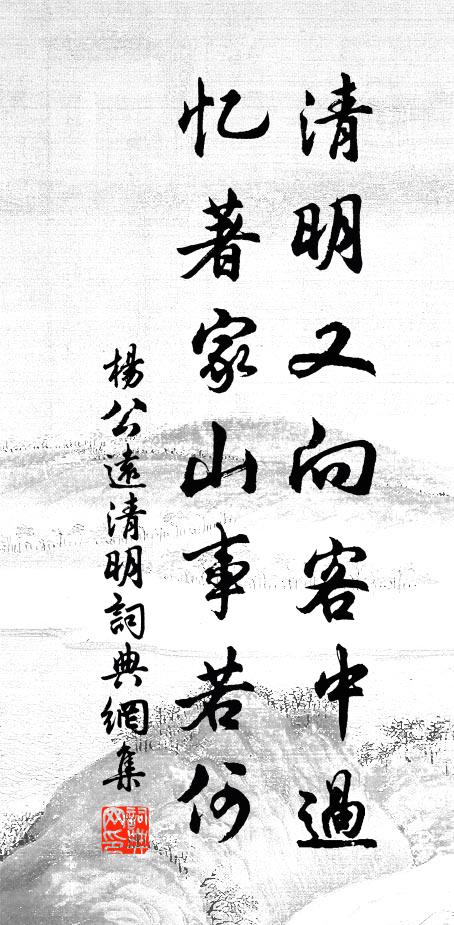 清明又向客中過
忆著家山事若何
楊公遠清明詞典網集